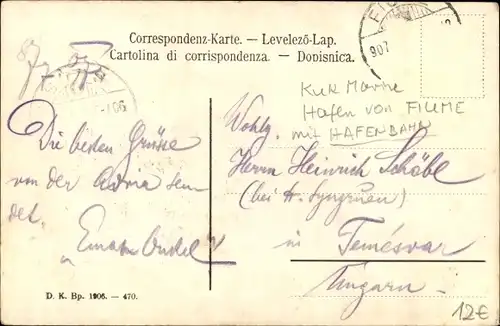 Correspondenz-Karte. — Levelező-Lap.
Cartolina di corrispondenza. — Dopisnica.
FIUME
907
KuK Marine
Hafen von FIUME
mit HAFENBAHN
Die besten Grüsse
von der Adria sen
det.
Wohlg.
Herrn Heinrich Schäbl
(bei H.
in Temésvar
Ungarn
D. K. Bp. 1906. — 470.
12€